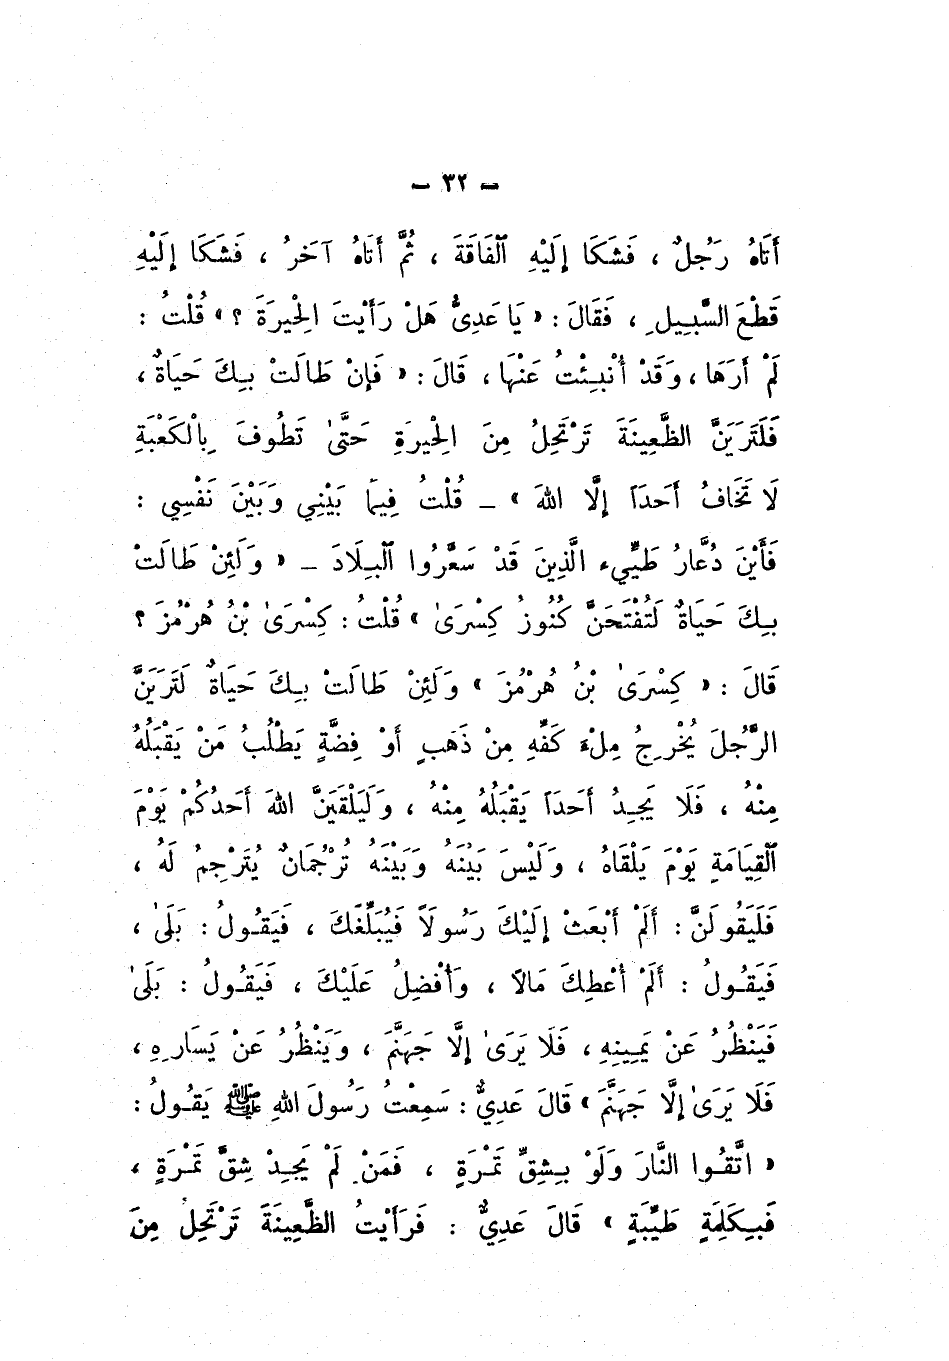 — ٣٢ —
أَتَاهُ رَجُلٌ ، فَشَكَا إِلَيْهِ ٱلْفَاقَةَ ، ثُمَّ أَتَاهُ آخَرُ ، فَشَكَا إِلَيْهِ
قَطْعَ السَّبِيلِ ، فَقَالَ : « يَا عَدِيُّ هَلْ رَأَيْتَ الْحِيرَةَ ؟ » قُلْتُ :
لَمْ أَرَهَا ، وَقَدْ أُنْبِئْتُ عَنْهَا ، قَالَ : « فَإِنْ طَالَتْ بِكَ حَيَاةٌ ،
فَلَتَرَيَنَّ الظَّعِينَةَ تَرْتَحِلُ مِنَ الْحِيرَةِ حَتَّىٰ تَطُوفَ بِالْكَعْبَةِ
لَا تَخَافُ أَحَدَاً إِلَّا اللهَ » — قُلْتُ فِيمَا بَيْنِي وَبَيْنَ نَفْسِي :
فَأَيْنَ دُعَّارُ طَيِّيءِ الَّذِينَ قَدْ سَعَّرُوا ٱلْبِلَادَ — « وَلَئِنْ طَالَتْ
بِكَ حَيَاةٌ لَتُفْتَحَنَّ كُنُوزُ كِسْرَىٰ » قُلْتُ : كِسْرَىٰ بْنُ هُرْمُزَ ؟
قَالَ : « كِسْرَىٰ بْنُ هُرْمُزَ » وَلَئِنْ طَالَتْ بِكَ حَيَاةٌ لَتَرَيَنَّ
الرَّجُلَ يُخْرِجُ مِلْءَ كَفِّهِ مِنْ ذَهَبٍ أَوْ فِضَّةٍ يَطْلُبُ مَنْ يَقْبَلُهُ
مِنْهُ ، فَلَا يَجِدُ أَحَدَاً يَقْبَلُهُ مِنْهُ ، وَلَيَلْقَيَنَّ اللهَ أَحَدُكُمْ يَوْمَ
ٱلْقِيَامَةِ يَوْمَ يَلْقَاهُ ، وَلَيْسَ بَيْنَهُ وَبَيْنَهُ تُرْجُمَانٌ يُتَرْجِمُ لَهُ ،
فَلَيَقُولَنَّ : أَلَمْ أَبْعَثْ إِلَيْكَ رَسُولَاً فَيُبَلِّغَكَ ، فَيَقُولُ : بَلَىٰ ،
فَيَقُولُ : أَلَمْ أُعْطِكَ مَالَاً ، وَأُفْضِلُ عَلَيْكَ ، فَيَقُولُ : بَلَىٰ
فَيَنْظُرُ عَنْ يَمِينِهِ ، فَلَا يَرَىٰ إِلَّا جَهَنَّمَ ، وَيَنْظُرُ عَنْ يَسَارِهِ ،
فَلَا يَرَىٰ إِلَّا جَهَنَّمَ » قَالَ عَدِيٌّ : سَمِعْتُ رَسُولَ اللهِ ﷺ يَقُولُ :
« اتَّقُوا النَّارَ وَلَوْ بِشِقِّ تَمْرَةٍ ، فَمَنْ لَمْ يَجِدْ شِقَّ تَمْرَةٍ ،
فَبِكَلِمَةٍ طَيِّبَةٍ » قَالَ عَدِيٌّ : فَرَأَيْتُ الظَّعِينَةَ تَرْتَحِلُ مِنَ